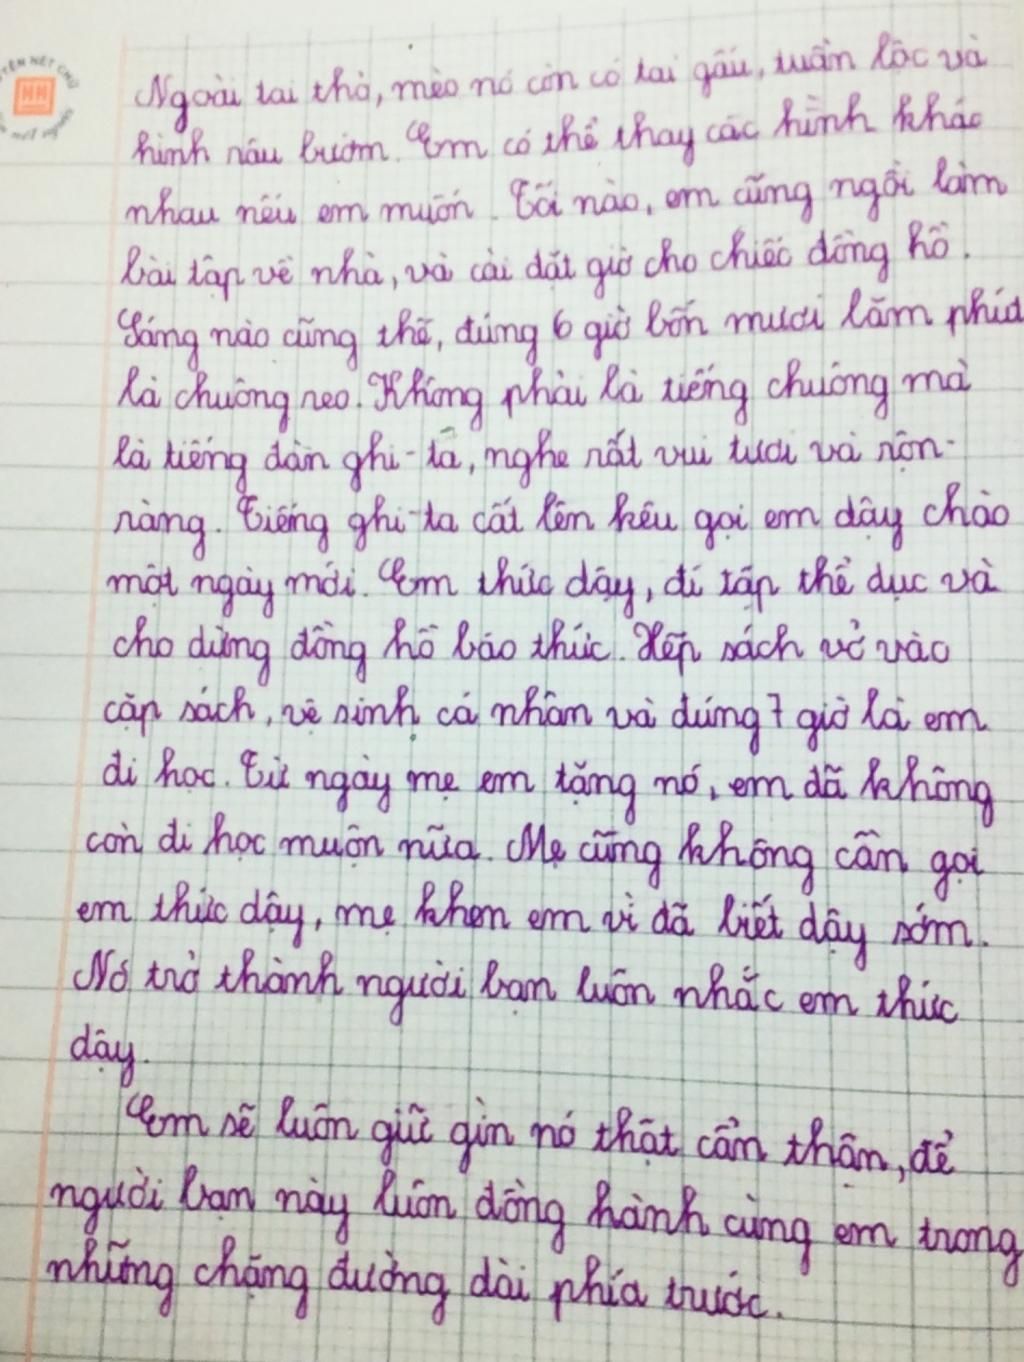 Ngoài tai thỏ, mèo nó còn có tai gấu, tuần lộc và
hình râu bướm. Em có thể thay các hình khác
nhau nếu em muốn. Tối nào, em cũng ngồi làm
bài tập về nhà, và cài đặt giờ cho chiếc đồng hồ.
Sáng nào cũng thế, đúng 6 giờ bốn mươi lăm phút
là chuông reo. Không phải là tiếng chuông mà
là tiếng đàn ghi-ta, nghe rất vui tươi và rộn
ràng. Tiếng ghi-ta cất lên kêu gọi em dậy chào
một ngày mới. Em thức dậy, đi tập thể dục và
cho dừng đồng hồ báo thức. Xếp sách vở vào
cặp sách, vệ sinh cá nhân và đúng 7 giờ là em
đi học. Từ ngày mẹ em tặng nó, em đã không
còn đi học muộn nữa. Mẹ cũng không cần gọi
em thức dậy, mẹ khen em vì đã biết dậy sớm.
Nó trở thành người bạn luôn nhắc em thức
dậy.
Em sẽ luôn giữ gìn nó thật cẩn thận, để
người bạn này luôn đồng hành cùng em trong
những chặng đường dài phía trước.